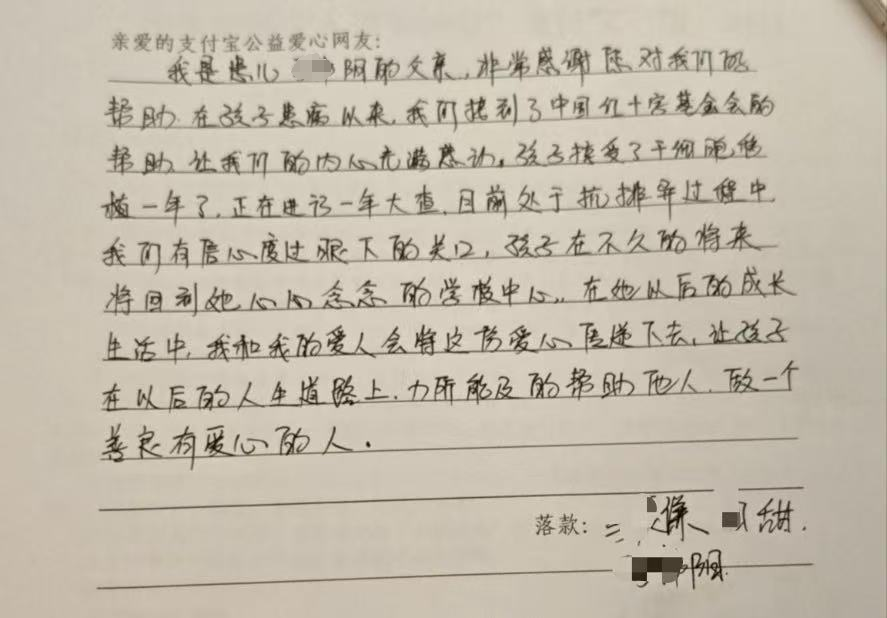 亲爱的支付宝公益爱心网友:
我是患儿 阳的父亲，非常感谢您对我们的
帮助.在孩子患病以来,我们接到了中国红十字基金会的
帮助.让我们的内心充满感动。孩子接受了干细胞移
植一年了,正在进行一年大查,目前处于抗排异过程中,
我们有信心度过眼下的关口,孩子在不久的将来
将回到她心心念念的学校中心。在她以后的成长
生活中,我和我的爱人会将这份爱心传递下去,让孩子
在以后的人生道路上,力所能及的帮助他人,做一个
善良有爱心的人.
落款: 甜.
阳.